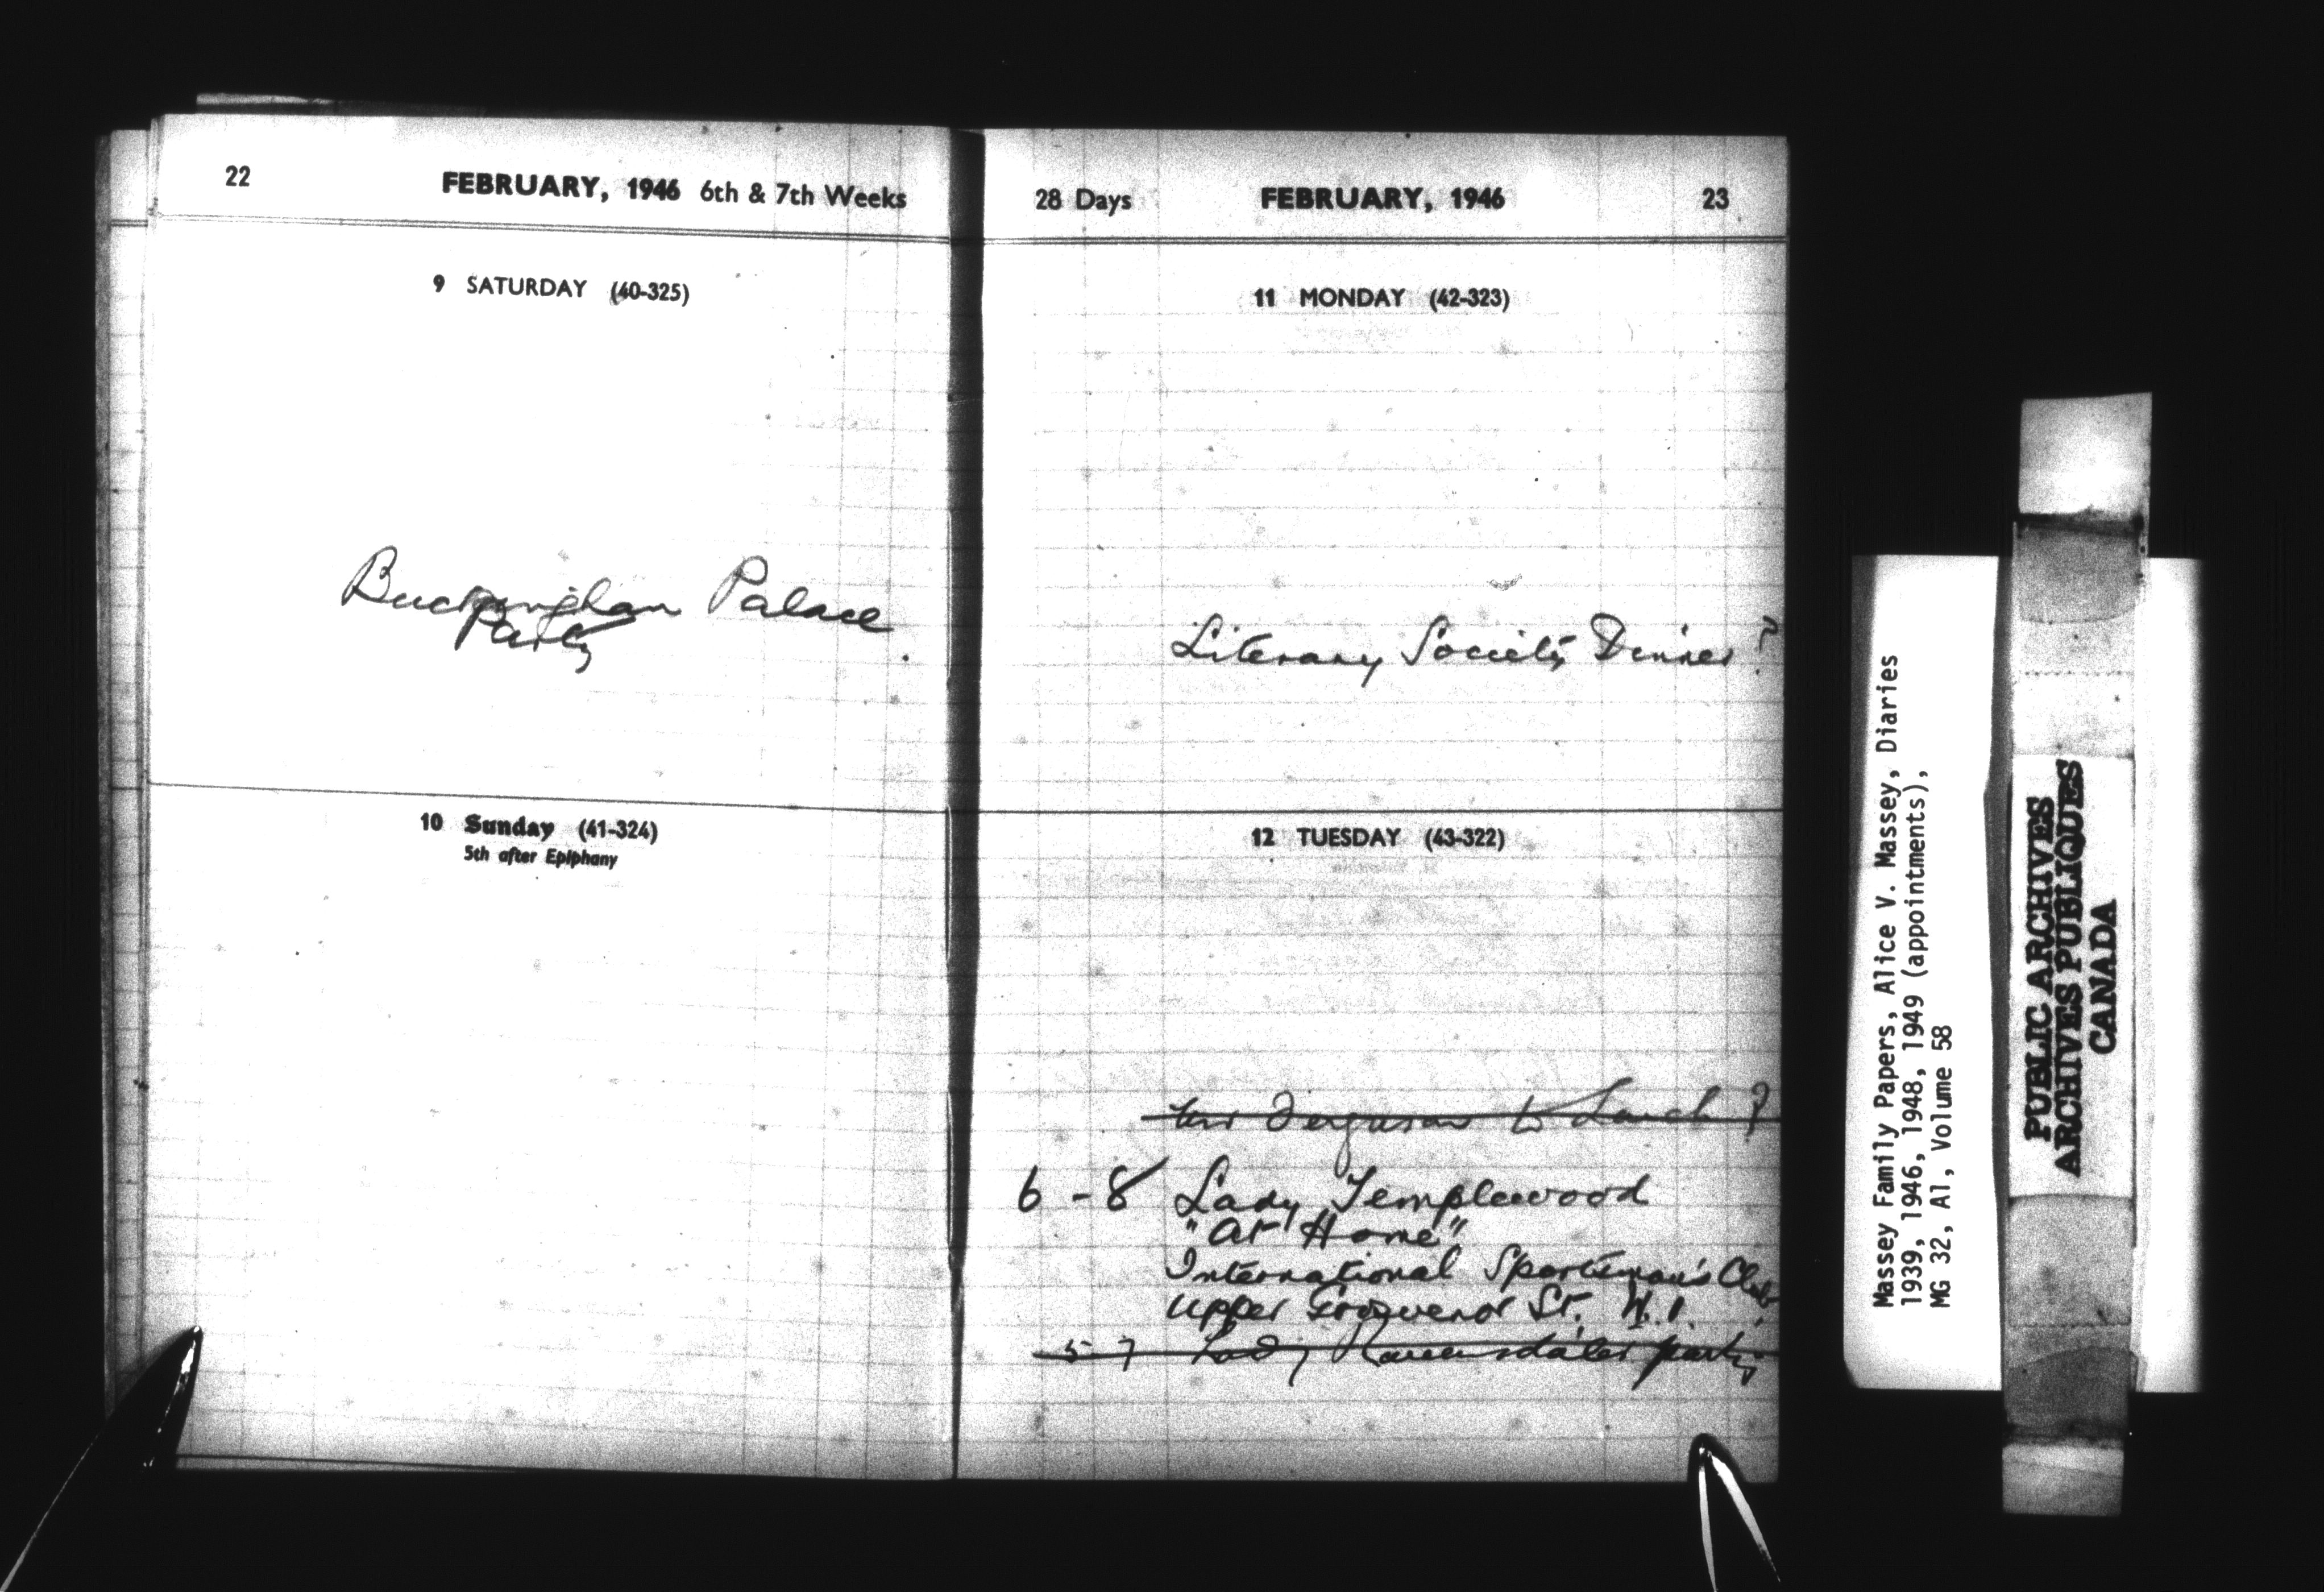 22 FEBRUARY, 1946 6th & 7th Weeks
9 SATURDAY (40-325)
Buckingham Palace
Party
10 Sunday (41-324)
5th after Epiphany
28 Days FEBRUARY, 1946 23
11 MONDAY (42-323)
Literary Society Dinner?
12 TUESDAY (43-322)
Ferguson to Lunch?
6-8 Lady Templewood
"At Home"
International Sportsman's Club
Upper Grosvenor St. W.1.
5-7 Lady Ravensdale's party
Massey Family Papers, Alice V. Massey, Diaries
1939, 1946, 1948, 1949 (appointments),
MG 32, A1, Volume 58
PUBLIC ARCHIVES
ARCHIVES PUBLIQUES
CANADA